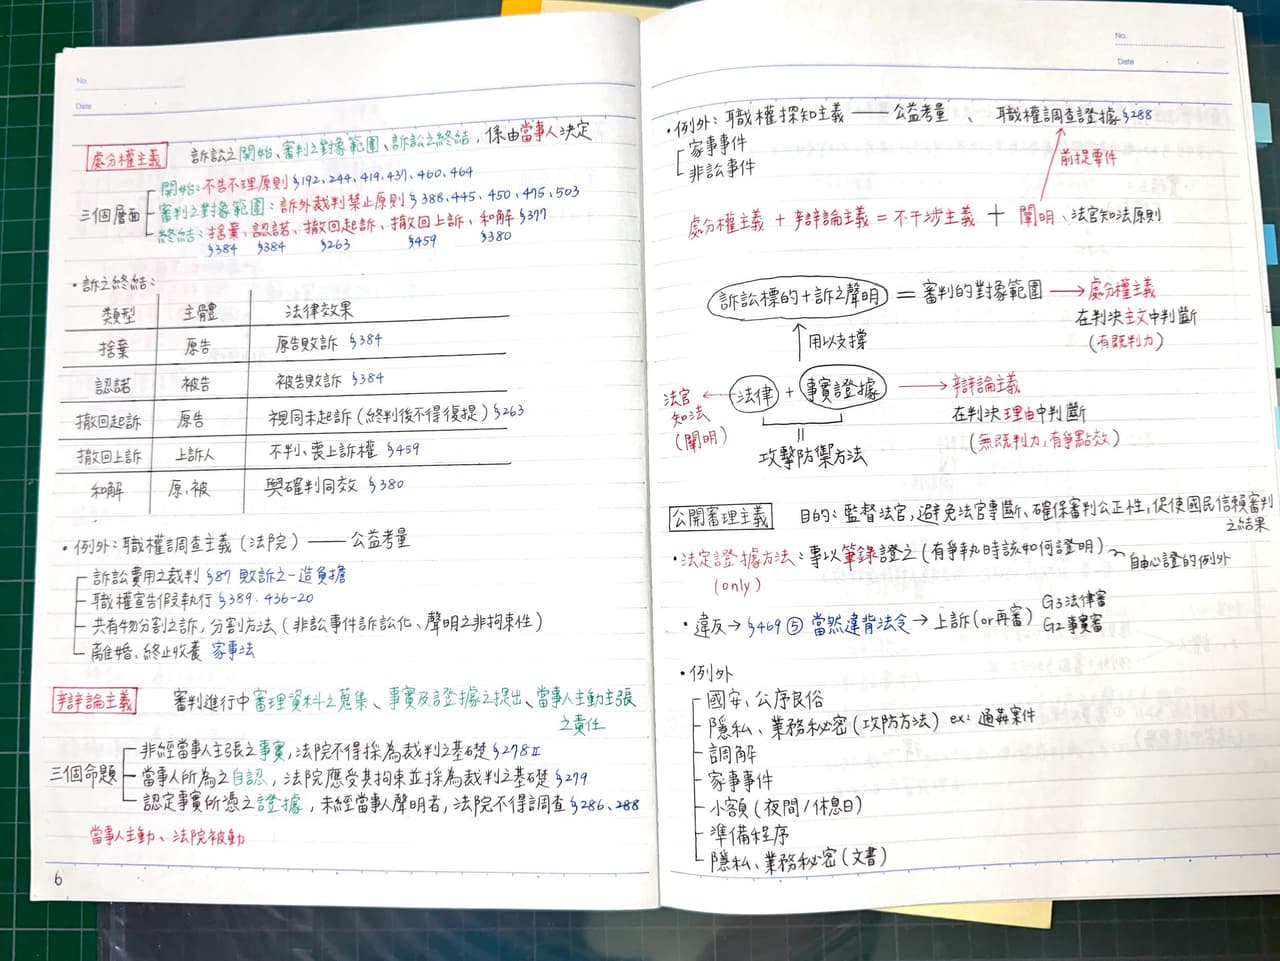 No.
Date
處分權主義 訴訟之開始、審判之對象範圍、訴訟之終結，係由當事人決定
三個層面
開始：不告不理原則 §192、244、419、437、460、464
審判之對象範圍：訴外裁判禁止原則 §388、445、450、475、503
終結：捨棄、認諾、撤回起訴、撤回上訴、和解 §377
§384 §384 §263 §459 §380
・訴之終結：
類型 主體 法律效果
捨棄 原告 原告敗訴 §384
認諾 被告 被告敗訴 §384
撤回起訴 原告 視同未起訴（終判後不得復提）§263
撤回上訴 上訴人 不判、喪上訴權 §459
和解 原、被 與確判同效 §380
・例外：職權調查主義（法院）——公益考量
訴訟費用之裁判 §87 敗訴之一造負擔
職權宣告假執行 §389、436-20
共有物分割之訴，分割方法（非訟事件訴訟化、聲明之非拘束性）
離婚、終止收養 家事法
辯論主義 審判進行中審理資料之蒐集、事實及證據之提出、當事人主動主張
之責任
三個命題
非經當事人主張之事實，法院不得採為裁判之基礎 §278II
當事人所為之自認，法院應受其拘束並採為裁判之基礎 §279
認定事實所憑之證據，未經當事人聲明者，法院不得調查 §286、288
當事人主動、法院被動
6
No.
Date
・例外：職權探知主義——公益考量、職權調查證據 §288
家事事件
非訟事件
前提事件
處分權主義＋辯論主義＝不干涉主義＋闡明、法官知法原則
訴訟標的＋訴之聲明＝審判的對象範圍→處分權主義
在判決主文中判斷
（有既判力）
用以支撐
法官知法（闡明）←法律＋事實證據→辯論主義
在判決理由中判斷
（無既判力，有爭點效）
＝
攻擊防禦方法
公開審理主義 目的：監督法官，避免法官專斷、確保審判公正性，促使國民信賴審判
之結果
・法定證據方法：專以筆錄證之（有爭執時該如何證明）～自由心證的例外
(only)
・違反→§469⑤當然違背法令→上訴(or再審) G3法律審
G2事實審
・例外
國安、公序良俗
隱私、業務秘密（攻防方法） ex：通姦案件
調解
家事事件
小額（夜間/休息日）
準備程序
隱私、業務秘密（文書）